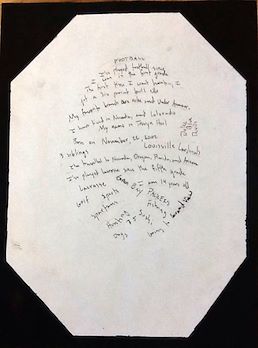 FOOTBALL
I've played football since
I was in the first grade
The first time I went hunting, I
got a six point bull elk
My favorite brands are Nike and Under Armour.
I have lived in Nevada, and Colorado
My name is
Born on November 26, 2002
Louisville Cardinals
3 siblings
I've traveled to Nevada, Oregon, Florida, and Arizona
I've played lacrosse since the fifth grade
Lacrosse
Green Bay Packers
I am 14 years old
Golf
Sports
Spartans
Fishing
Hunting
Dogs